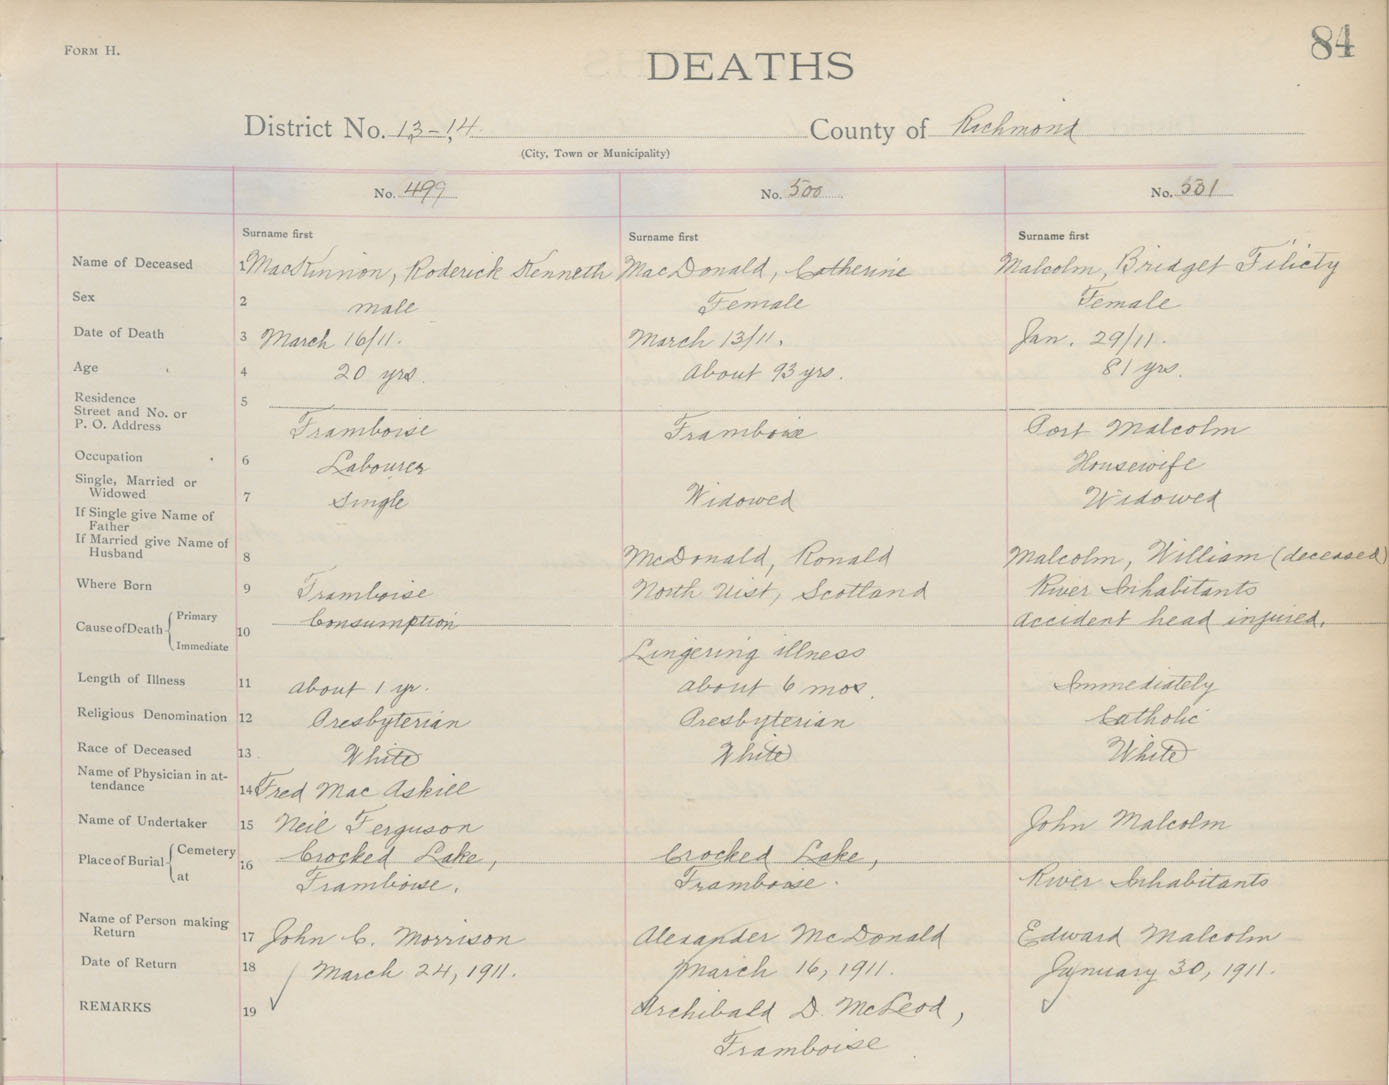 FORM H.
84
DEATHS
District No. 13-14. County of Richmond
(City, Town or Municipality)
No. 499 No. 500 No. 501
Surname first Surname first Surname first
Name of Deceased 1 MacKinnon, Roderick Kenneth MacDonald, Catherine Malcolm, Bridget Filicty
Sex 2 male Female Female
Date of Death 3 March 16/11. March 13/11. Jan. 29/11.
Age 4 20 yrs. About 93 yrs. 81 yrs.
Residence 5
Street and No. or
P. O. Address Framboise Framboise Port Malcolm
Occupation 6 Labourer Housewife
Single, Married or
Widowed 7 Single Widowed Widowed
If Single give Name of
Father
If Married give Name of
Husband 8 McDonald, Ronald Malcolm, William (deceased)
Where Born 9 Framboise North Uist, Scotland River Inhabitants
Cause of Death Primary Consumption Accident head injured.
10
Immediate Lingering illness
Length of Illness 11 About 1 yr. About 6 mos. Immediately
Religious Denomination 12 Presbyterian Presbyterian Catholic
Race of Deceased 13 White White White
Name of Physician in at-
tendance 14 Fred Mac Askill
Name of Undertaker 15 Neil Ferguson John Malcolm
Place of Burial Cemetery 16 Crocked Lake, Crocked Lake,
at Framboise. Framboise. River Inhabitants
Name of Person making
Return 17 John C. Morrison Alexander McDonald Edward Malcolm
Date of Return 18 March 24, 1911. March 16, 1911. January 30, 1911.
REMARKS 19 Archibald D. McLeod,
Framboise